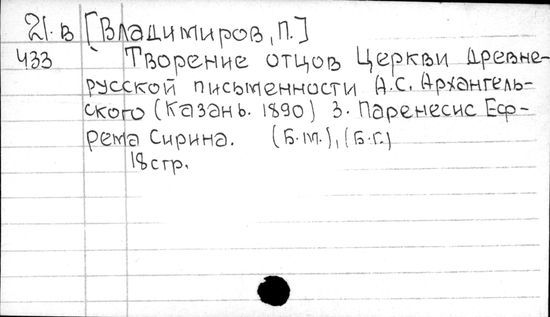 21.в [Владимиров, П.]
433 Творение отцов Церкви древне-
русской письменности А.С. Архангель-
ского (Казань. 1890) 3. Паренесис Еф-
рема Сирина. (Б.м.), (Б.г.)
18 стр.